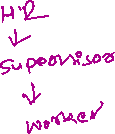 HR
↓
Supervisor
↓
worker